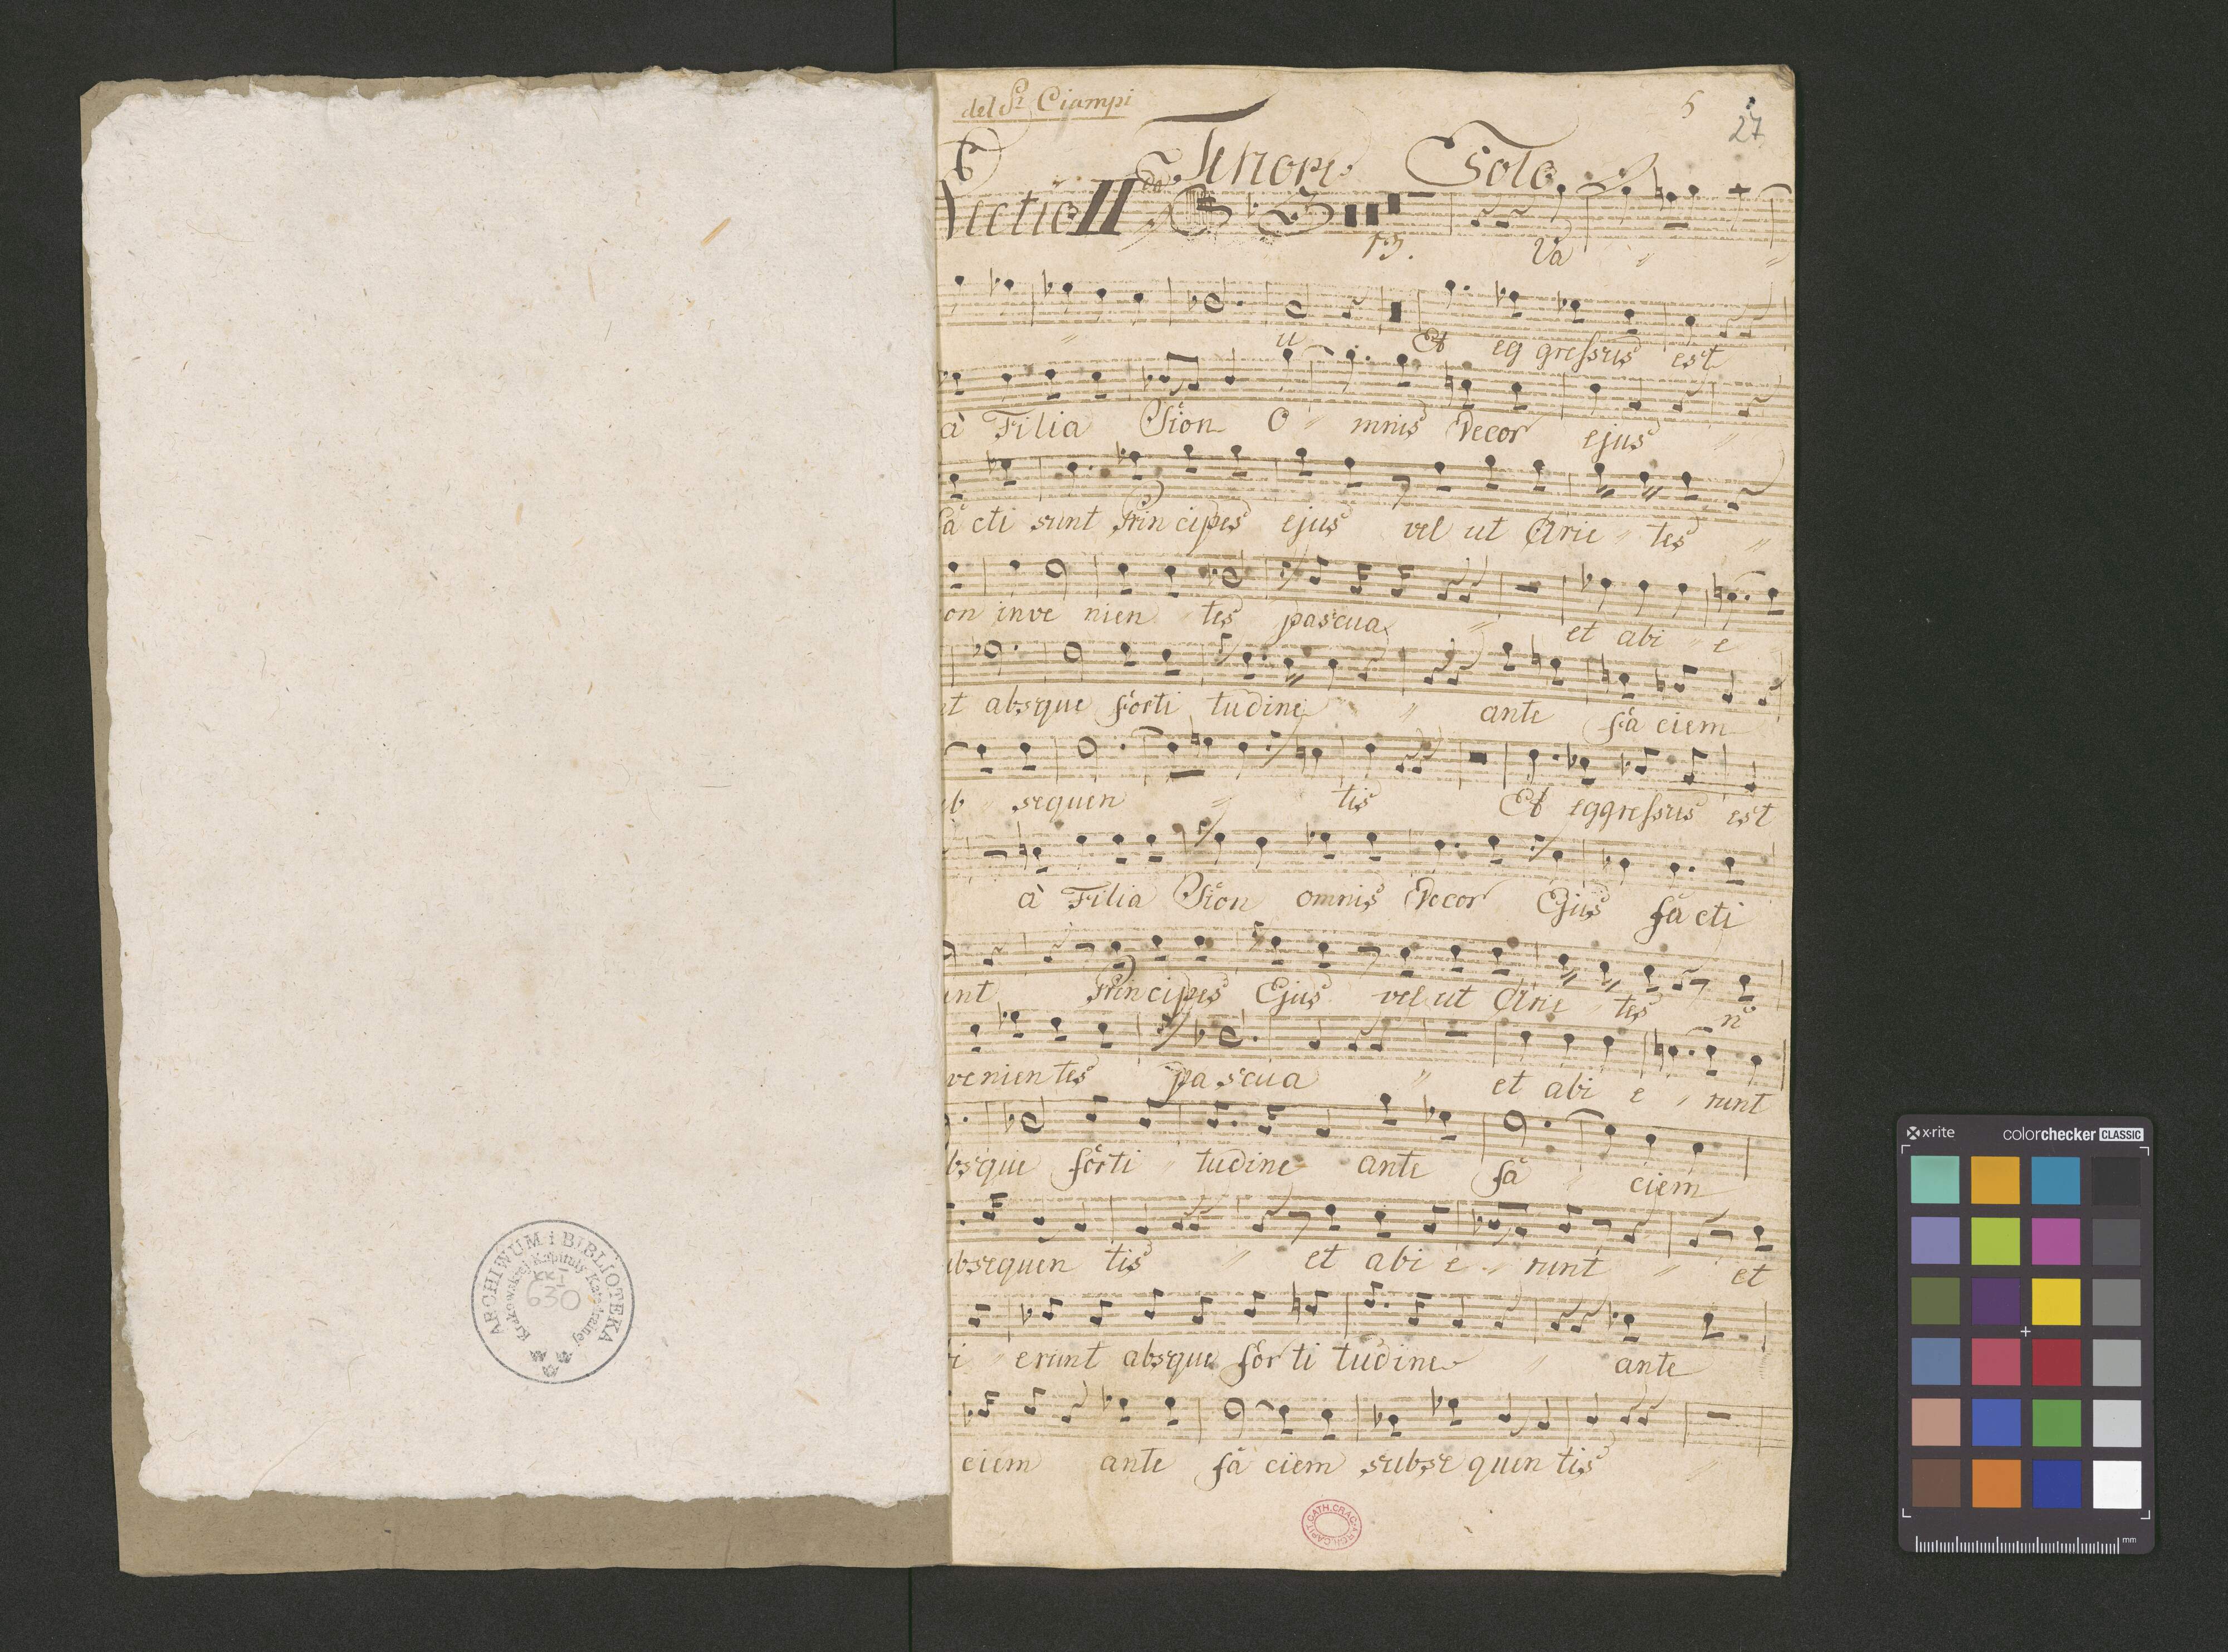 del Sr Ciampi
5
27
6
Tenore Solo
Lectio II da
13.
Va " "
" u Et eg gressus est
à Filia Sion O " mnis Decor ejus "
Fa cti sunt Principes ejus vel ut Arie " tes "
on inve nien " tes pascua " et abi " e
nt absque forti tudine " ante fa ciem
ub " sequen " tis Et eggressus est
à Filia Sion omnis Decor Ejus fa cti
unt Principes Ejus vel ut Arie " tes no
venientes pa scua " et abi e " runt
bsque forti " tudine ante fa " ciem
ubsequen tis " et abi e " runt " et
bi " erunt absque for ti tudine " ante
ciem ante fa ciem subse quen tis "
ARCHIWUM i BIBLIOTEKA
Krakowskiej Kapituły Katedralnej
KkI
630
CATH. CRAC.
x·rite
colorchecker CLASSIC
mm